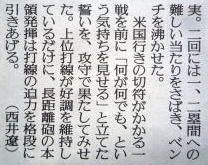 実。二回には一、二塁間への
難しい当たりをさばき、ベン
チを沸かせた。
　米国行きの切符がかかる一
戦を前に「何が何でも、とい
う気持ちを見せる」と立てた
誓いを、攻守で果たしてみせ
た。上位打線が好調を維持し
ているだけに、長距離砲の本
領発揮は打線の迫力を格段に
引きあげる。　（西井遼）